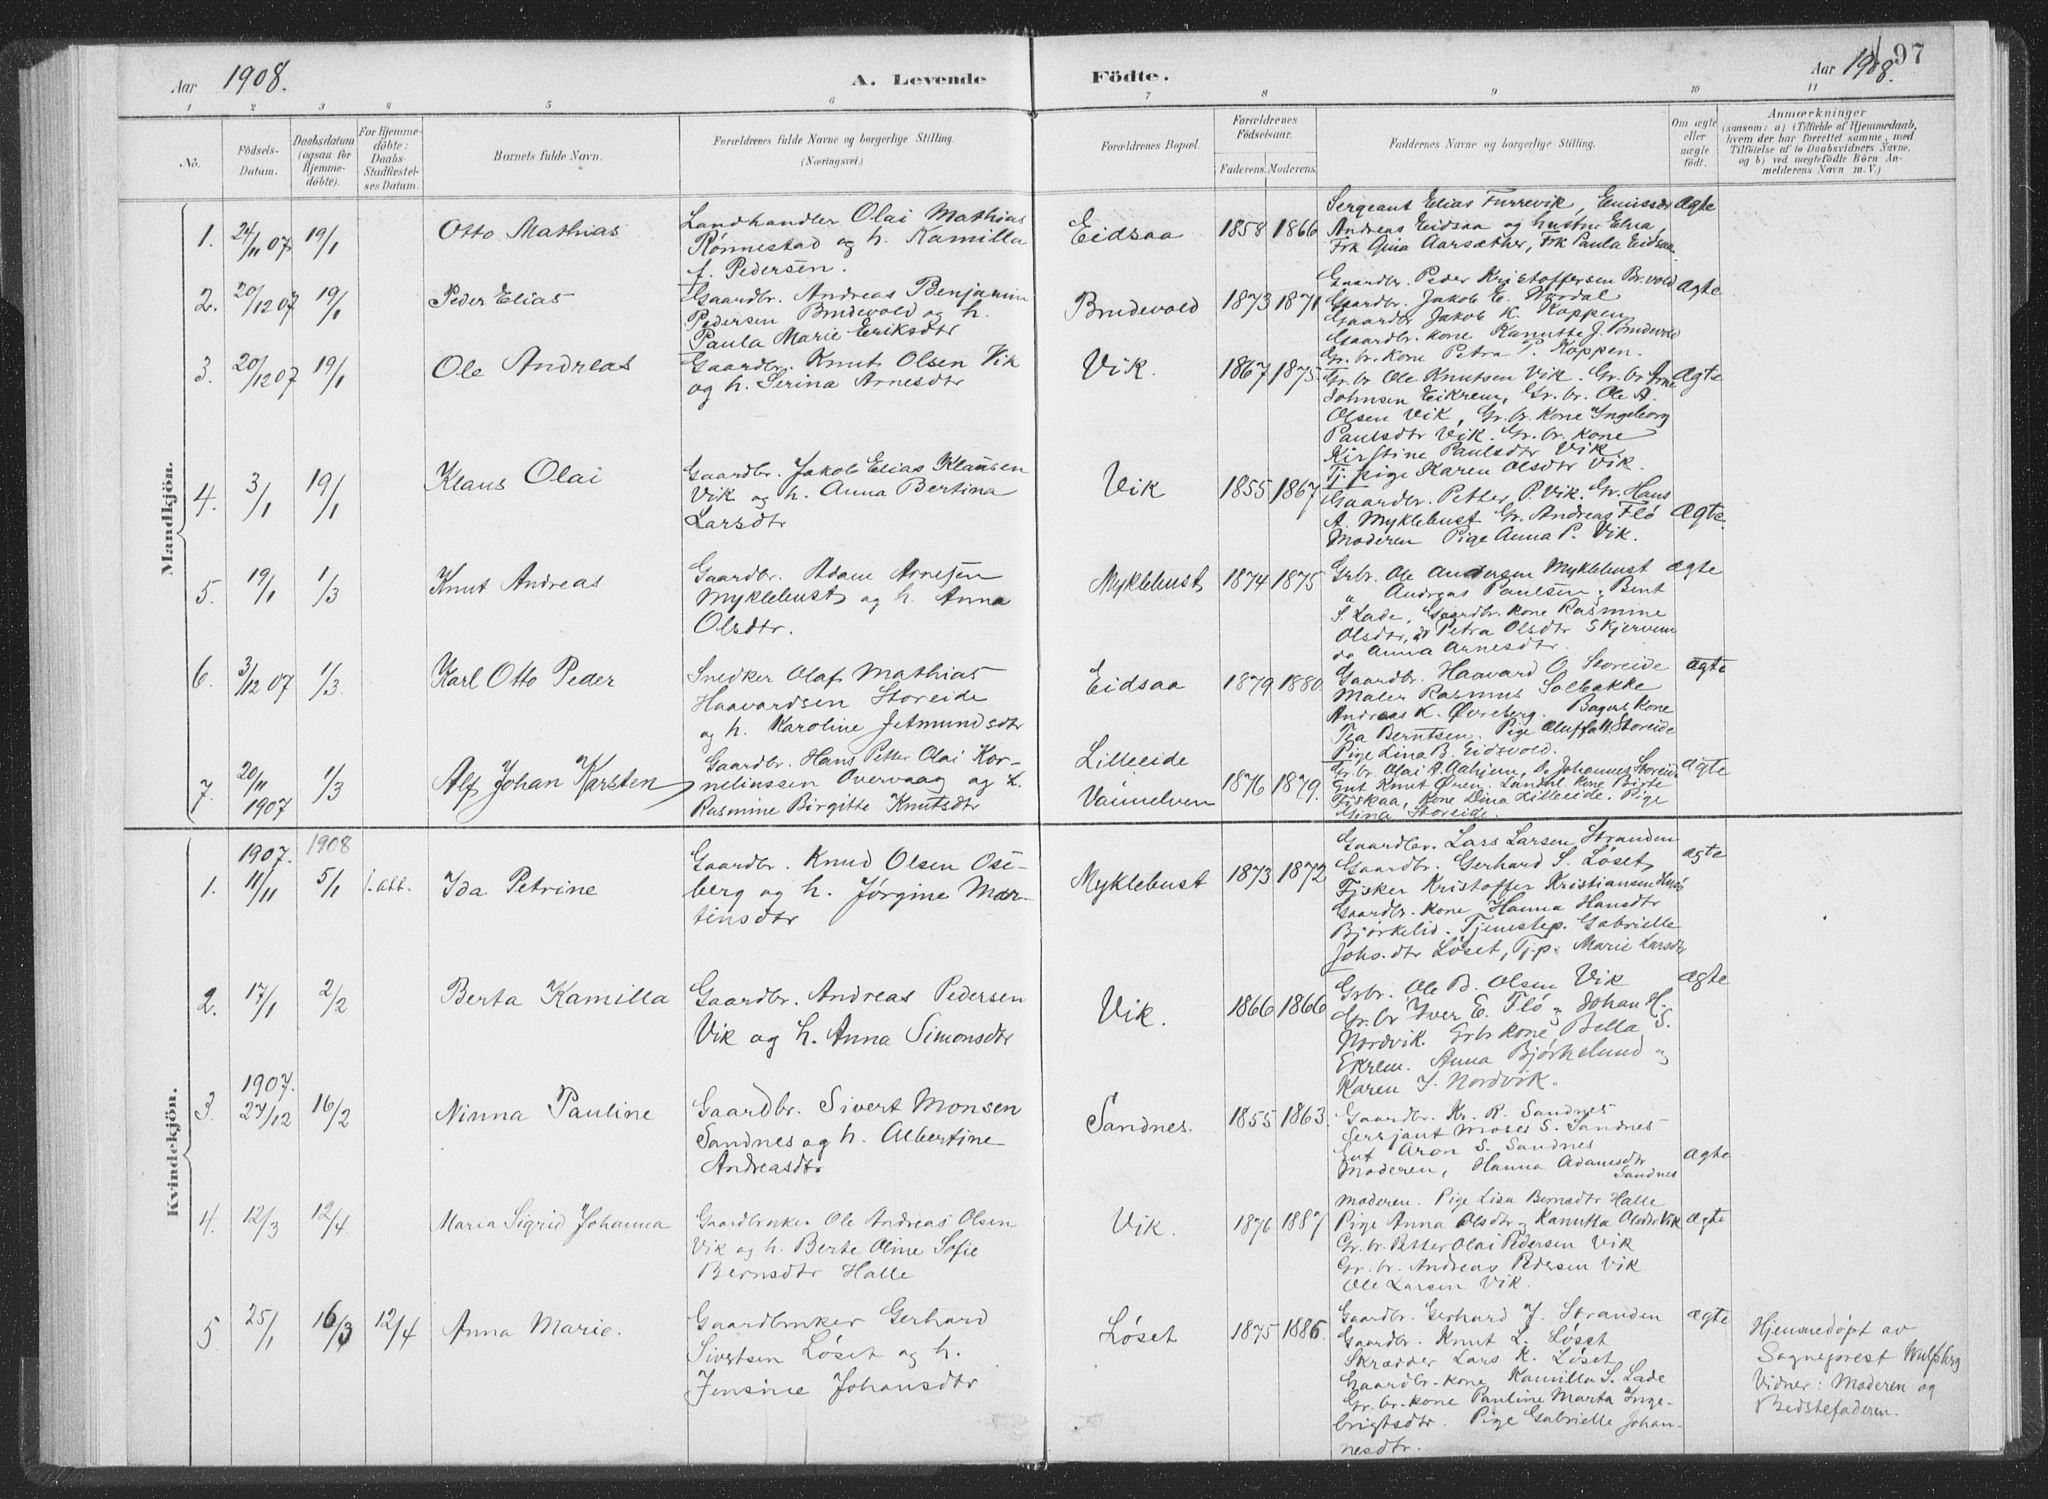 Aar 1908.
A. Levende Födte.
Aar 1908.
97
1 2 3 4 5 6 7 8 9 10 11
No.
Födsels-Datum.
Daabsdatum (ogsaa for Hjemmedöbte).
For Hjemmedöbte: Daabs-Stadfæstelses Datum.
Barnets fulde Navn.
Forældrenes fulde Navne og borgerlige Stilling. (Næringsvei.)
Forældrenes Bopæl.
Forældrenes Födselsaar.
Faderens. Moderens.
Faddernes Navne og borgerlige Stilling.
Om ægte eller uægte födt.
Anmærkninger
(saasom: a) i Tilfælde af Hjemmedaab, hvem der har forrettet samme, med Tilföielse af to Daabsvidners Navne, og b) ved uægtefödte Börn Anmelderens Navn m. V.)
Mandkjön.
1. 24/11 07 19/1 Otto Mathias
Landhandler Olai Mathias
Rönnestad og h. Kamilla
f. Pedersen.
Eidsaa 1858 1866
Sergeant Elias Furrevik, Emissær
Andreas Eidsaa og hustru Elia,
Frk Gina Aarsæther, Frk Paula Eidsaa
Ægte
2. 20/12 07 19/1 Peder Elias
Gaardbr. Andreas Benjamin
Pedersen Brudevold og h.
Paula Marie Eriksdtr
Brudevold 1873 1871
Gaardbr. Peder Kristoffersen Br.vold
Gaardbr. Jakob E. Nordal
Gaardbr Jakob K. Koppen
Gaardbr. kone Kanutte J. Brudevold
Gr. br. kone Petra P. Koppen.
Ægte
3. 20/12 07 19/1 Ole Andreas
Gaardbr. Knut Olsen Vik
og h. Serina Arnesdtr
Vik. 1867 1875
Gr. br Ole Knutsen Vik. Gr. br Arne
Johnsen Eikrem, Gr. br. Ole A.
Olsen Vik, Gr. br. kone Ingeborg
Paulsdtr Vik. Gr. br. kone
Kirstine Paulsdtr Vik
Tj. pige Karen Olsdtr Vik.
Ægte
4. 3/1 19/1 Klaus Olai
Gaardbr. Jakob Elias Klausen
Vik og h. Anna Bertina
Larsdtr
Vik 1855 1867
Gaardbr. Petter P. Vik. Gr. Hans
A. Myklebust Gr. Andreas Flö
Moderen Pige Anna P. Vik.
Ægte.
5. 19/1 1/3 Knut Andreas
Gaardbr. Adam Arnesen
Myklebust og h. Anna
Olsdtr.
Myklebust 1874 1875
Grbr. Ole Andersen Myklebust
" Andreas Paulsen, Bent
S. Lade, Gaardbr. kone Rasmine
Olsdtr, do Petra Olsdtr Skjervem
do Anna Arnesdtr.
Ægte
6. 3/12 07 1/3. Karl Otto Peder
Snedker Olaf Mathias
Haavardsen Storeide
og h. Karoline Jetmundsdtr
Eidsaa 1879 1880
Gaardbr. Haavard O. Storeide
Maler Rasmus Solbakke
Andreas K. Øvreberg. Bagers kone
Tea Berntsen. Pige Oluffa H. Storeide
Pige Lina B. Eidsvold.
Ægte
7. 20/11 1907 1/3 Alf Johan Karsten
Gaardbr. Hans Petter Olai Kor-
neliussen Overvaag og h.
Rasmine Birgitte Knutsdtr
Lilleeide
Vannelven 1876 1879.
Gr. br. Olai A. Aahjem, Do Johannes Storeide
Gut Knut Øren. Landhl. kone Birte
Fiskaa, Kone Dina Lilleeide. Pige
Gina Storeide.
Ægte
Kvindekjön.
1. 1907. 11/11 1908 5/1 f. att. Ida Petrine
Gaardbr. Knud Olsen Ose-
berg og h. Jørgine Mar-
tinsdtr
Myklebust 1873 1872
Gaardbr. Lars Larsen Stranden
Gaardbr. Gerhard S. Løset,
Fisker Kristoffer Kristiansen
Gaardbr. kone Hanna Hansdtr
Bjørkelid. Tjenestep. Gabrielle
Johs.dtr Løset, Tjp. Marie Larsdtr
Ægte
2. 17/1 2/2 Berta Kamilla
Gaardbr. Andreas Pedersen
Vik og h. Anna Simonsdtr
Vik. 1866 1866
Grbr. Ole B. Olsen Vik
Gr. br Iver E. Flö, Johan H.
Nordvik. Grbr kone Bella S.
Ekrem. Anna Bjørkelund og
Karen J. Nordvik.
Ægte
3. 1907. 27/12 16/2 Ninna Pauline
Gaardbr. Sivert Monsen
Sandnes og h. Albertine
Andreasdtr
Sandnes. 1855 1863.
Gaardbr. Kr. R. Sandnes
Sersjant Moses S. Sandnes
Gut Aron S. Sandnes
Moderen, Hanna Adamsdtr
Sandnes
Ægte
4. 12/3 12/4 Maria Sigrid Johanna
Gaardbruker Ole Andreas Olsen
Vik og h. Berte Oline Sofie
Bernsdtr Halle
Vik. 1876 1887
Moderen. Pige Lisa Berndtr Halle
Pige Anna Olsdtr, Kanutta Olsdtr Vik
Gr. br. Petter Olai Pedersen Vik
Gr. br. Andreas Pedersen Vik
Ole Larsen Vik.
Ægte
5 25/1 16/3 12/4 Anna Marie.
Gaardbruker Gerhard
Sivertsen Løset og h.
Jensine Johansdtr
Løset 1875 1886.
Gaardbr. Gerhard J. Stranden
Gaardbr. Knut L. Løset
Skrædder Lars K. Løset
Gaardbr. kone Kamilla S. Lade
Gr. br. kone Pauline Marta Inge-
brigtsdtr. Pige Gabrielle Johan-
nesdtr.
Ægte
Hjemmedøpt av
Sogneprest Wulfsberg
Vidner: Moderen og
Bedstefaderen.